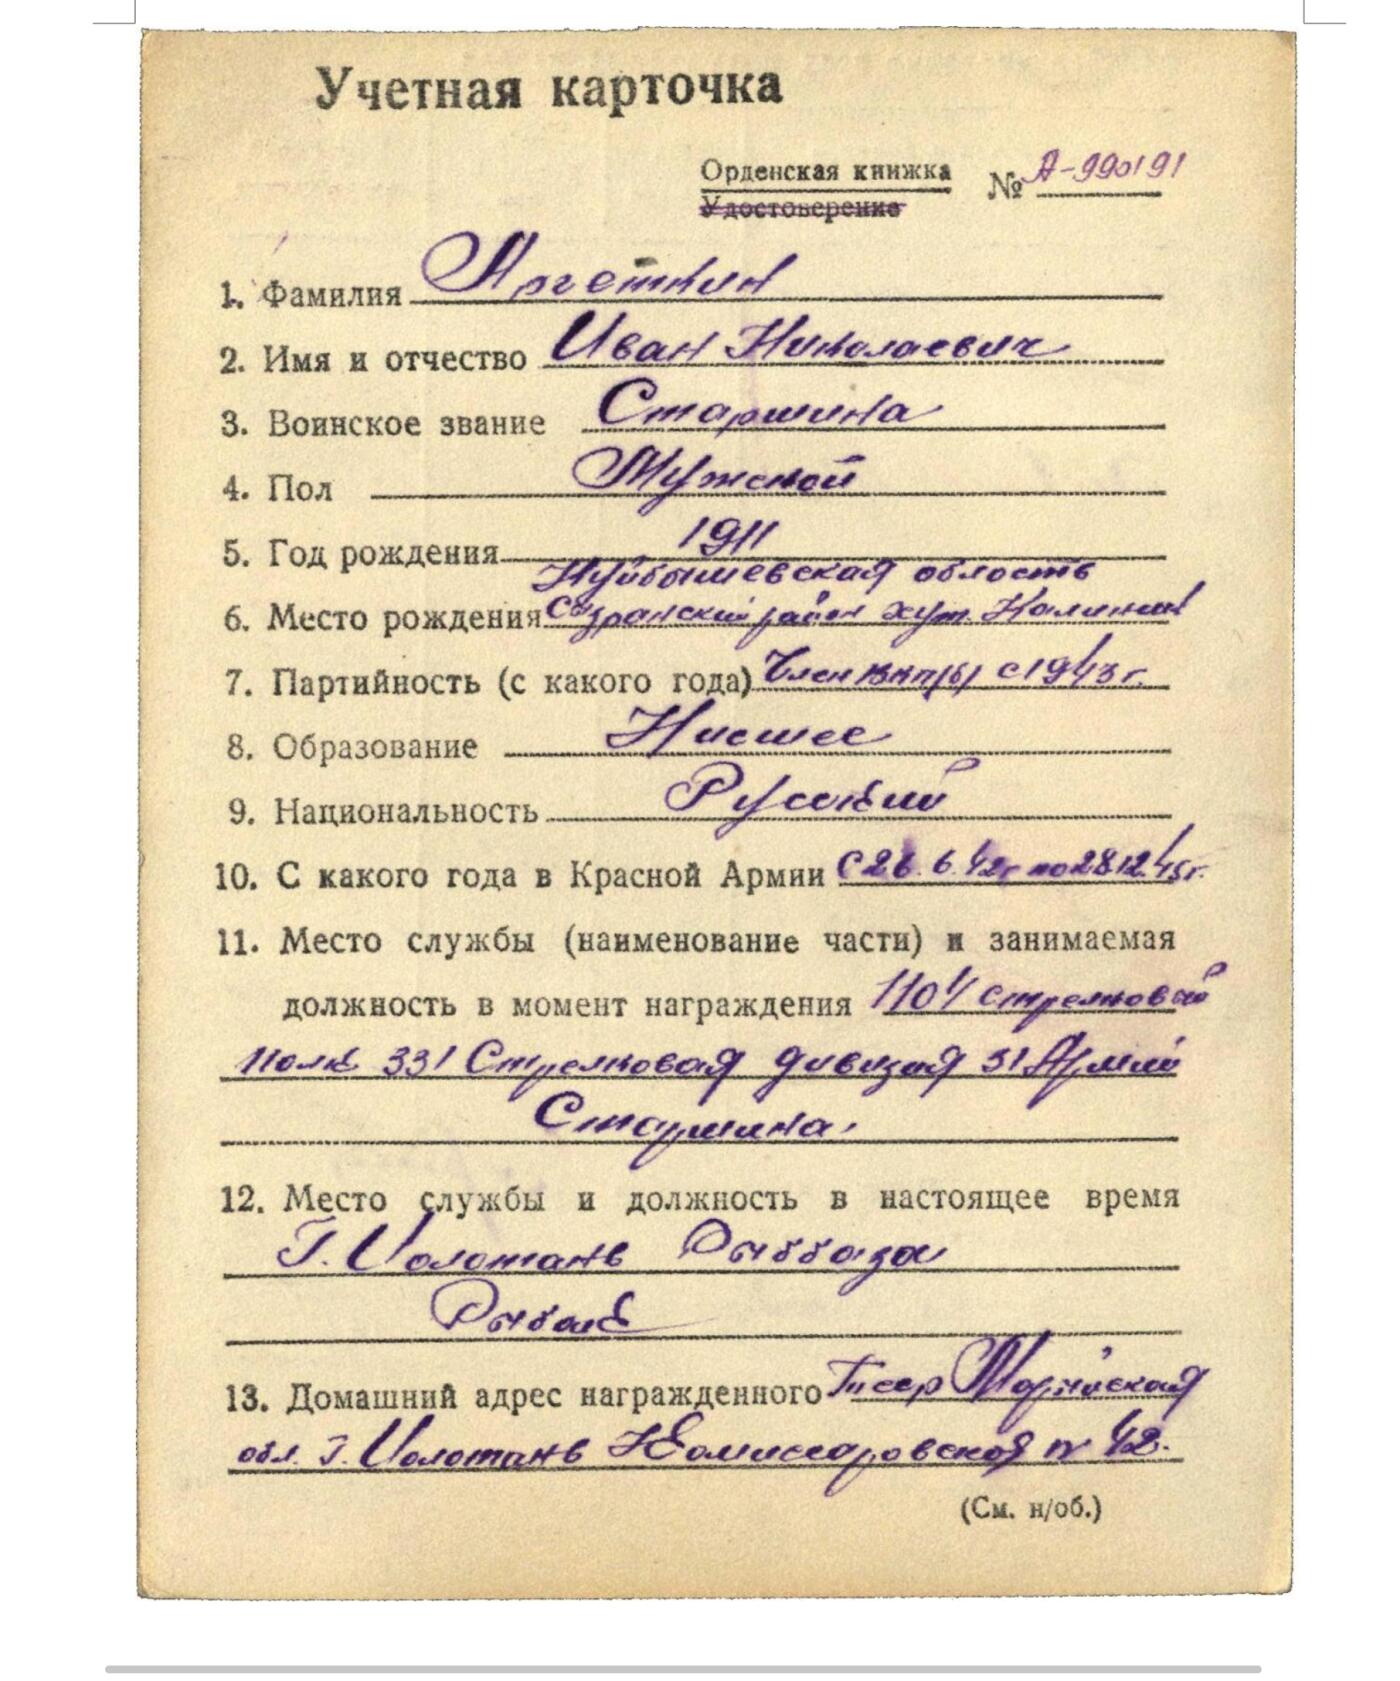 Учетная карточка
Орденская книжка № А-990191
Удостоверение
1. Фамилия Аргеткин
2. Имя и отчество Иван Николаевич
3. Воинское звание Старшина
4. Пол Мужской
5. Год рождения 1911
Куйбышевская область
6. Место рождения Сызранский район хут. Калинин
7. Партийность (с какого года) Член ВКП(б) с 1943 г.
8. Образование Нисшее
9. Национальность Русский
10. С какого года в Красной Армии С 26.6.42г по 28.12.45г.
11. Место службы (наименование части) и занимаемая
должность в момент награждения 1104 стрелковый
полк 331 Стрелковая дивизия 31 Армии
Старшина.
12. Место службы и должность в настоящее время
Г. Иолотань Рыббаза
Рыбак
13. Домашний адрес награжденного Тсср Марийская
обл. г. Иолотань Комиссаровская № 42.
(См. н/об.)